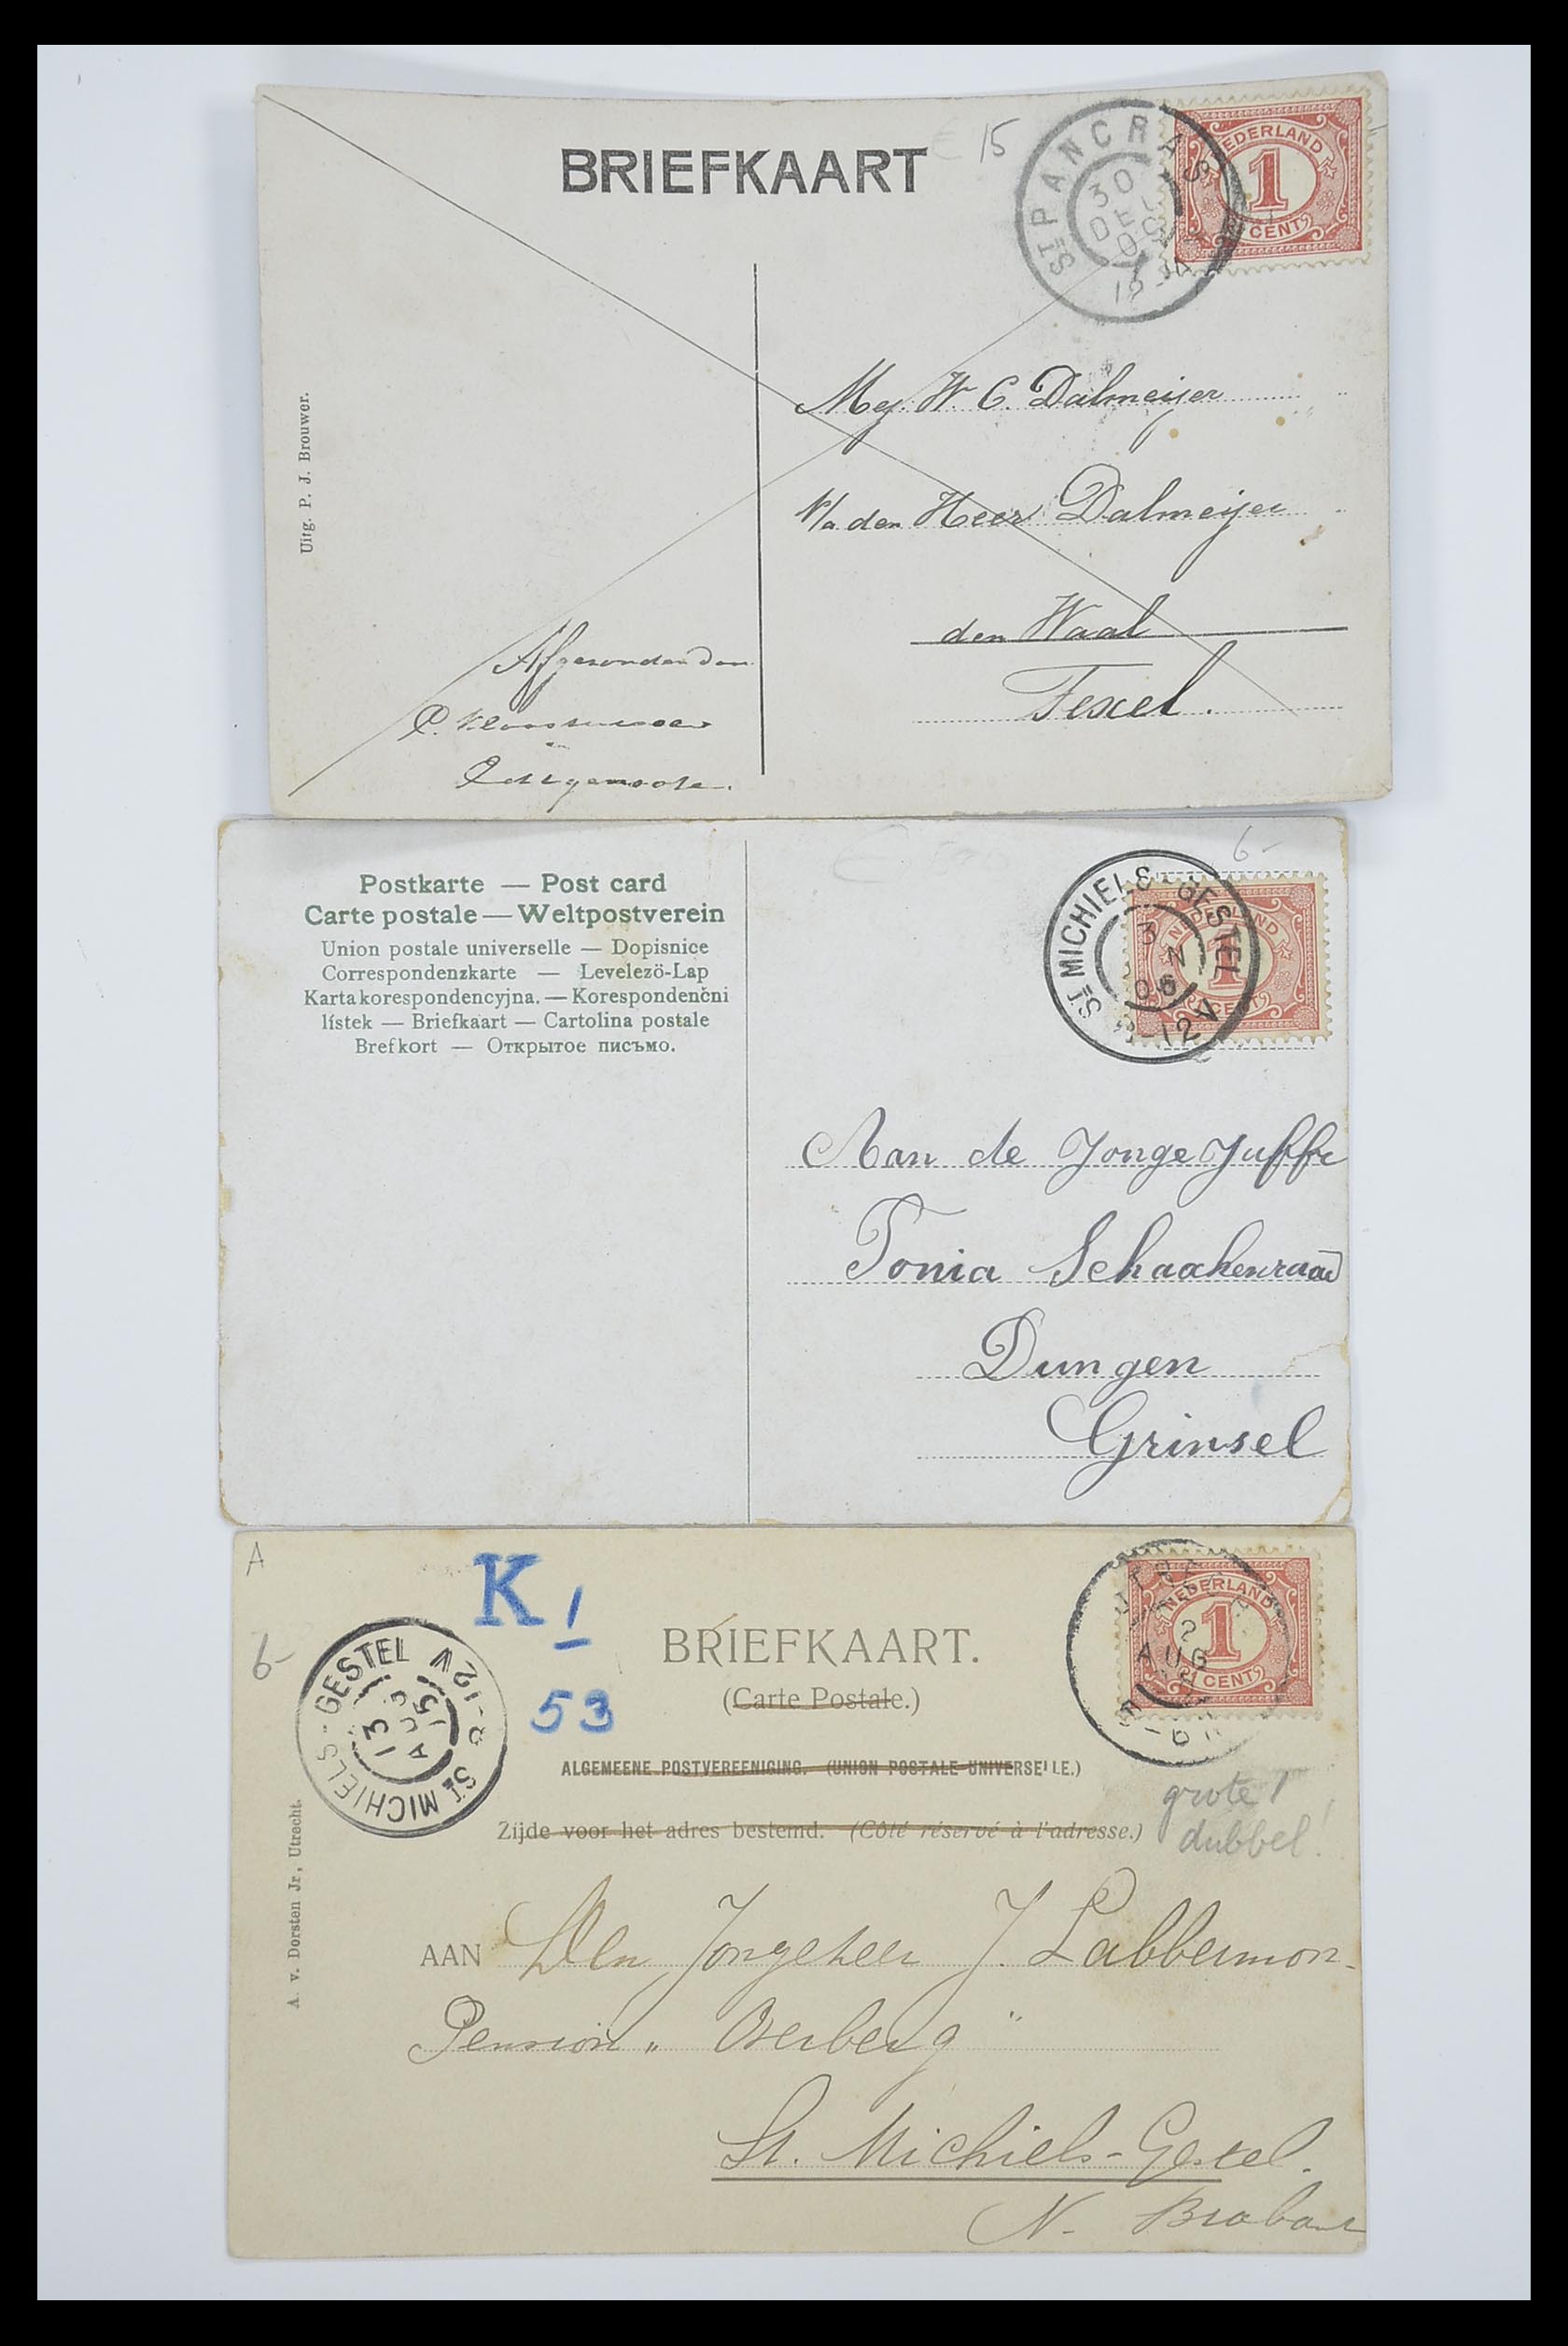 BRIEFKAART
15
ST PANCRAS
30
DEC
NEDERLAND
1
CENT
Uitg. P. J. Brouwer.
Mej. W. C. Dalmeijer
V/a den Heer Dalmeijer
den Waal
Texel.
Afgezonden Don
Postkarte — Post card
Carte postale — Weltpostverein
Union postale universelle — Dopisnice
Correspondenzkarte — Levelező-Lap
Karta korespondencyjna. — Korespondenčni
lístek — Briefkaart — Cartolina postale
Brefkort — Открытое письмо.
6-
ST MICHIELS-GESTEL
3
06
-12V
NEDERLAND
1
CENT
Aan de Jonge Juffr
Tonia Schaakenraad
Dungen
Grinsel
A
6-
K 1
53
ST MICHIELS-GESTEL
13
AUG
15
8-12V
BRIEFKAART.
(Carte Postale.)
ALGEMEENE POSTVEREENIGING. (UNION POSTALE UNIVERSELLE.)
Zijde voor het adres bestemd. (Côté réservé à l'adresse.)
UTRECHT
2
AUG
NEDERLAND
1
1 CENT
grote 1
dubbel!
A. v. Dorsten Jr., Utrecht.
AAN Den Jongeheer J. Labbermon-
Pension „ Overberg "
St. Michiels-Gestel.
N. Brabant